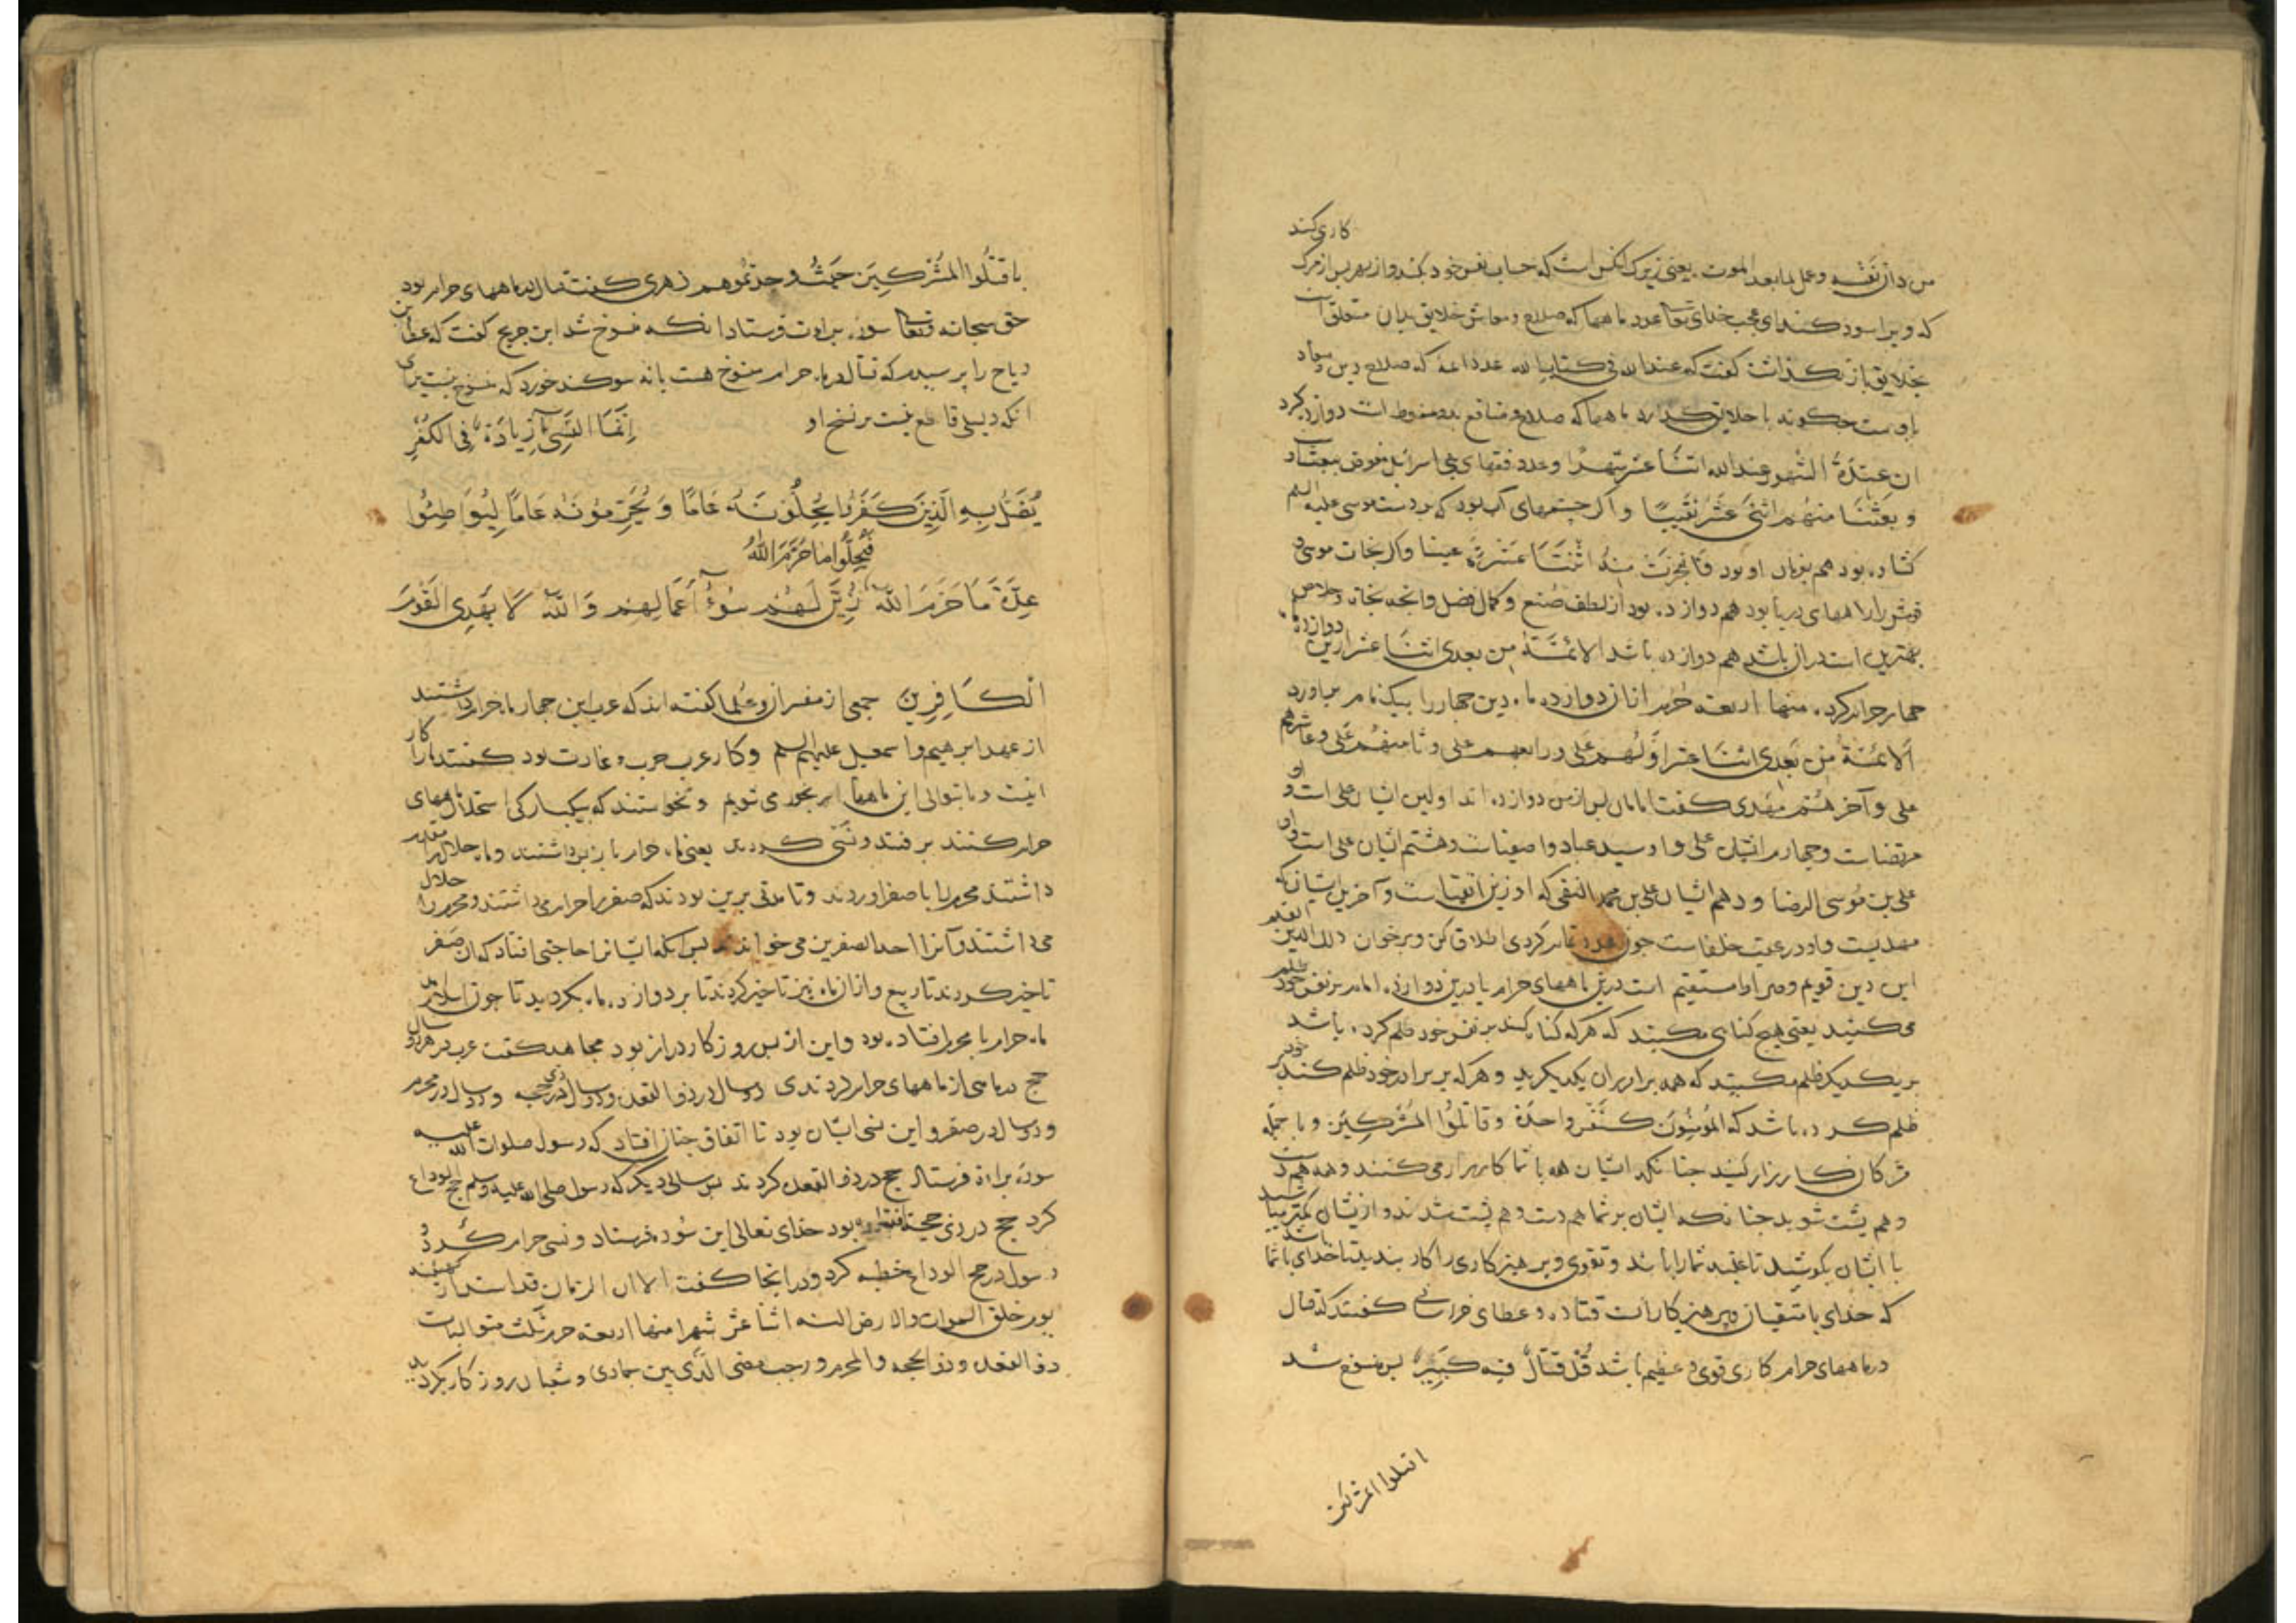 کاری کند
من دان نفسه وعمل لما بعد الموت یعنی زیرک انکس است که حساب نفس خود بکند و از بهر پس از مرک
که ویرا سود کند ای عجب خدای تعالی عدد ماهها که صلاح ومعاش خلایق بدان متعلق است
بخلایق باز نکذاشت کفت که عند الله فی کتاب الله عدد ائمه که صلاح دین ومعاد
باوست چکونه با خلایق کذارد ماهها که صلاح و منافع بدو منوط است دوازده کرد
ان عدة الشهور عند الله اثنا عشر شهرا وعدد نقبهای بنی اسرائیل
وبعثنا منهم اثنی عشر نقیبًا واکر چشمهای آب بود که بر دست موسی علیه السلم
کشاده بود هم بوزان او بود فانفجرت منه اثنتا عشرة عینا واکر نجات موسی و
قومش را راههای دریا بود هم دوازده بود از لطف صنع وکمال فضل وانچه نجات وخلاص
بهترین است در ان باشد هم دوازده باشد الائمة من بعدی اثنا عشر ازین دوازده
چهار حرام کرد منها اربعة حرم ازان دوازده ماه دین چهار را بیک نام بر آورد
الائمة من بعدی اثنا عشر اوّلهم علی ورابعهم علی وثامنهم علی وعاشرهم
علی وآخرهم مهدی کفت امامان پس از من دوازده اند اولین ایشان علی است و او
مرتضاست وچهارم ایشان علی و او سید عباد و اصفیاست وهشتم ایشان علی است و او
علی بن موسی الرضا ودهم ایشان علی بن محمد النقی که او زین اتقیاست وآخرین ایشان که
مهدیست و او در غیبت خلفاست چون عدد تمام کردی اطلاق کن و برخوان ذلک الدین القیم
این دین قویم وصراط مستقیم است درین ماههای حرام یا درین دوازده امام بر نفس خود ظلم
می کنید یعنی هیچ کناهی مکنید که هر که کناه کند بر نفس خود ظلم کرده باشد
بر یکدیکر ظلم مکنید که همه برادران یکدیکرید وهر که بر برادر خود ظلم کند بر خود
ظلم کرده باشد که المؤمنون کنفس واحدة وقاتلوا المشرکین وبا جمله
مشرکان کارزار کنید چنانکه ایشان همه با شما کارزار می کنند وهمه هم دست
وهم پشت شوید چنانکه ایشان بر شما هم دست وهم پشت شدند و از ایشان کمتر مباشید
با ایشان بکوشید تا غلبه شما را باشد وتقوی وپرهیزکاری را کار بندید تا خدای با شما باشد
که خدای با متقیان وپرهیزکارانست قتاده وعطای خراسانی کفتند که قتال
در ماههای حرام کاری قوی وعظیم باشد قل قتال فیه کبیر پس منسوخ شد
اقتلوا المشرکین
باقتلوا المشرکین حیث وجدتموهم زهری کفت قتال در ماههای حرام بود
حق سبحانه وتعالی سوره براءت فرستاد انکه منسوخ شد ابن جریج کفت که عطا بن
رباح را پرسیدم که قتال در ماه حرام منسوخ هست یا نه سوکند خورد که منسوخ نیست برای
انکه دلیلی قاطع نیست بر نسخ او انما النسیء زیادة فی الکفر
یضل به الذین کفروا یحلونه عامًا ویحرمونه عامًا لیواطئوا
فیحلوا ما حرّم الله
عدّة ما حرم الله زیّن لهم سوء اعمالهم والله لا یهدی القوم
الکافرین جمعی از مفسران وعلما کفته اند که عرب این چهار ماه حرام داشتند
از عهد ابرهیم و اسمعیل علیهم السلم وکار عرب حرب وغارت بود کفتند ما را کار
اینست وما بتوالی این ماهها رنجور می شویم ونخواستند که بیکبارکی استحلال ماههای
حرام کنند برفتند ونسی کردند یعنی ماه حرام باز پس داشتند وماه حلال را مقدم
داشتند محرم را با صفر اوردند وتا مدتی برین بودند که صفر را حرام می داشتند ومحرم را حلال
می داشتند وآنرا احد الصفرین می خواندند پس انکه ایشانرا حاجتی افتاد که ان صفر
تاخیر کردند تا ربیع وازان ماه نیز تاخیر کردند تا بر دوازده ماه بکردید تا چون اسلام آمد
ماه حرام با محرم افتاده بود واین از پس روزکار دراز بود مجاهد کفت عرب در هر دو سال
حج در ماهی از ماههای حرام کردندی دو سال در ذو القعده ودو سال در ذی حجه ودو سال در محرم
ودو سال در صفر واین نسی ایشان بود تا اتفاق چنان افتاد که رسول صلوات الله علیه
سوره براءة فرستاد حج در ذو القعده کردند پس سالی دیکر که رسول صلی الله علیه وسلم حج الوداع
کرد حج در ذی حجة افتاده بود خدای تعالی این سوره فرستاد ونسی حرام کرد و
رسول در حج الوداع خطبه کرد ودر انجا کفت الا ان الزمان قد استدار کهیئته
یوم خلق السموات والارض السنه اثنا عشر شهرا منها اربعه حرم ثلث متوالیات
ذو القعده وذو الحجه والمحرم ورجب مضر الذی بین جمادی وشعبان روزکار بکردید